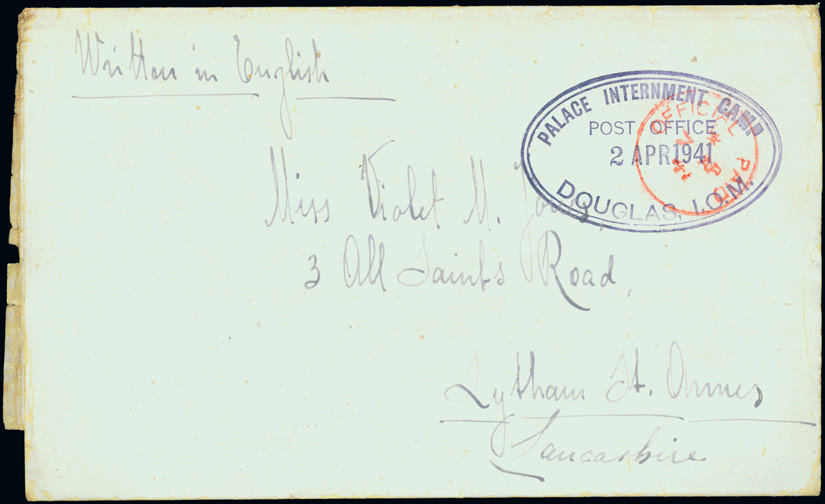 Written in English
PALACE INTERNMENT CAMP
POST OFFICE
2 APR 1941
DOUGLAS, I.O.M.
OFFICIAL PAID
Miss Violet M.
3 All Saints Road,
Lytham St. Annes
Lancashire